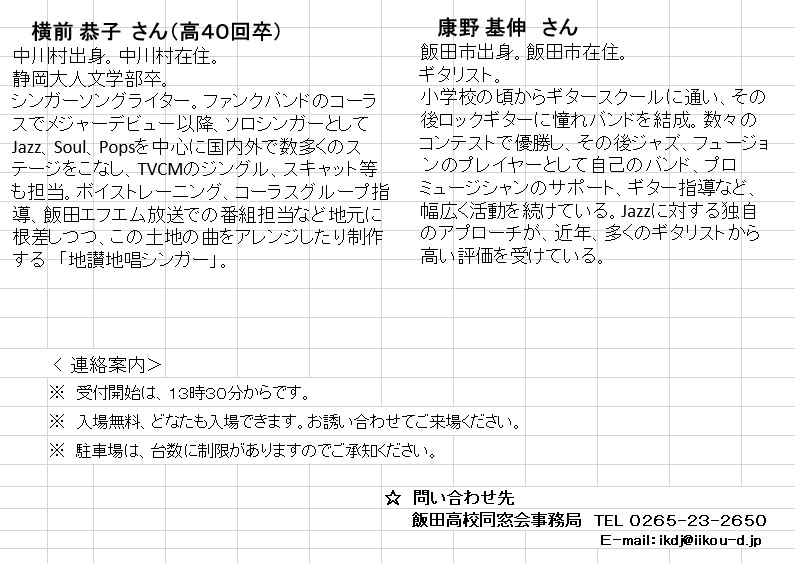 横前 恭子 さん（高４０回卒）
中川村出身。中川村在住。
静岡大人文学部卒。
シンガーソングライター。ファンクバンドのコーラ
スでメジャーデビュー以降、ソロシンガーとして
Jazz、Soul、Popsを中心に国内外で数多くのス
テージをこなし、TVCMのジングル、スキャット等
も担当。ボイストレーニング、コーラスグループ指
導、飯田エフエム放送での番組担当など地元に
根差しつつ、この土地の曲をアレンジしたり制作
する 「地讃地唱シンガー」。
康野 基伸 さん
飯田市出身。飯田市在住。
ギタリスト。
小学校の頃からギタースクールに通い、その
後ロックギターに憧れバンドを結成。数々の
コンテストで優勝し、その後ジャズ、フュージョ
ンのプレイヤーとして自己のバンド、プロ
ミュージシャンのサポート、ギター指導など、
幅広く活動を続けている。Jazzに対する独自
のアプローチが、近年、多くのギタリストから
高い評価を受けている。
＜ 連絡案内＞
※ 受付開始は、１３時３０分からです。
※ 入場無料、どなたも入場できます。お誘い合わせてご来場ください。
※ 駐車場は、台数に制限がありますのでご承知ください。
☆ 問い合わせ先
飯田高校同窓会事務局 TEL 0265-23-2650
E-mail：ikdj@iikou-d.jp